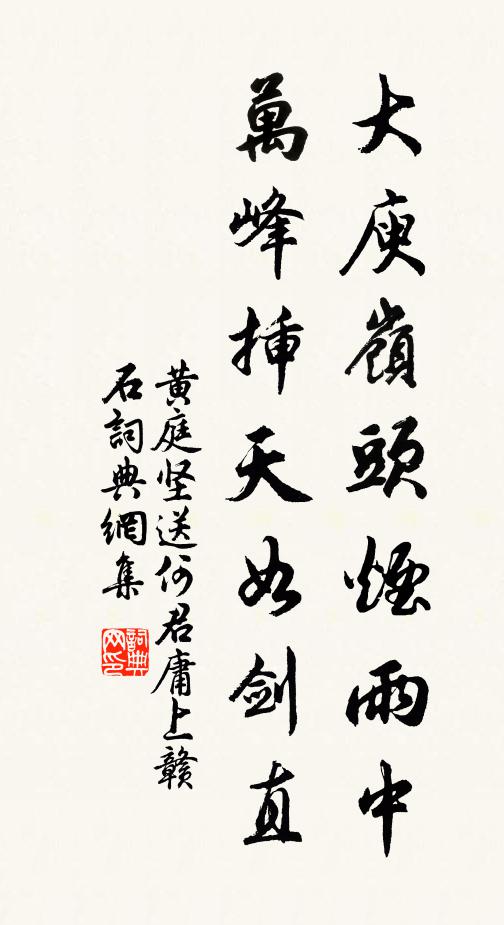 大庾嶺頭煙雨中
萬峰挿天如剑直
黄庭坚送何君庸上贛
石詞典網集
詞典
网印